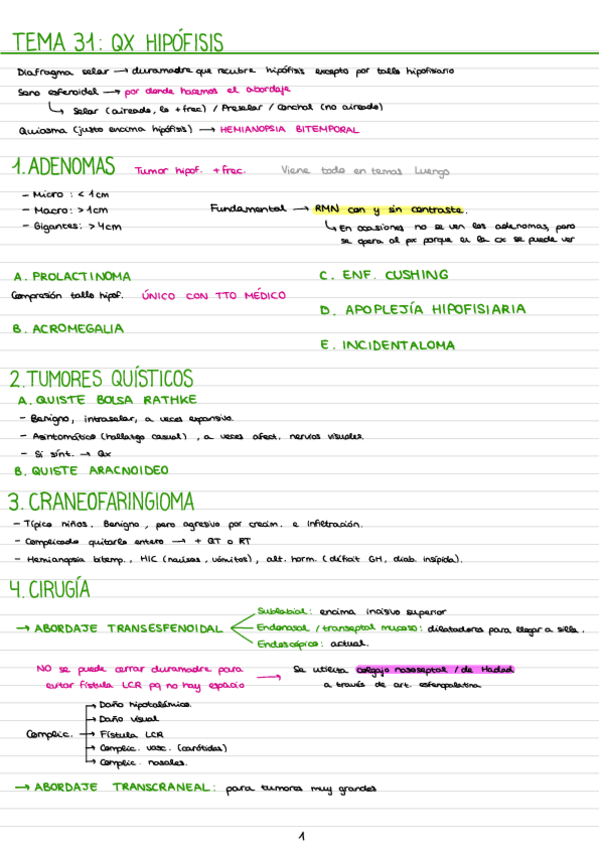 TEMA 31: QX HIPÓFISIS
Diafragma selar → duramadre que recubre hipófisis excepto por tallo hipofisario
Seno esfenoidal → por donde hacemos el abordaje
↳ Selar (aireado, lo + frec) / Preselar / Conchal (no aireado)
Quiasma (justo encima hipófisis) → HEMIANOPSIA BITEMPORAL
1. ADENOMAS Tumor hipof. + frec. Viene todo en temas luego
- Micro : < 1cm
- Macro: > 1cm
- Gigantes: > 4cm
Fundamental → RMN con y sin contraste.
↳ En ocasiones no se ven los adenomas, pero
se opera al px porque en la cx se puede ver
A. PROLACTINOMA
Compresión tallo hipof. ÚNICO CON TTO MÉDICO
B. ACROMEGALIA
C. ENF. CUSHING
D. APOPLEJÍA HIPOFISIARIA
E. INCIDENTALOMA
2. TUMORES QUÍSTICOS
A. QUISTE BOLSA RATHKE
- Benigno, intraselar, a veces expansivo.
- Asintomático (hallazgo casual) , a veces afect. nervios visuales.
- Si sínt. → Qx
B. QUISTE ARACNOIDEO
3. CRANEOFARINGIOMA
- Típico niños. Benigno, pero agresivo por crecim. e infiltración.
- Complicado quitarlo entero → + QT o RT
- Hemianopsia bitemp., HIC (naúseas, vómitos), alt. horm. (déficit GH, diab. insípida).
4. CIRUGÍA
→ ABORDAJE TRANSESFENOIDAL
Sublabial: encima incisivo superior
Endonasal / transeptal mucoso: dilatadores para llegar a silla.
Endoscópico: actual.
NO se puede cerrar duramadre para
evitar fístula LCR pq no hay espacio
→ Se utiliza colgajo nasoseptal / de Hadad
a través de art. esfenopalatina
Complic. →
→ Daño hipotalámico
→ Daño visual
→ Fístula LCR
→ Complic. vasc. (carótidas)
→ Complic. nasales.
→ ABORDAJE TRANSCRANEAL: para tumores muy grandes
1